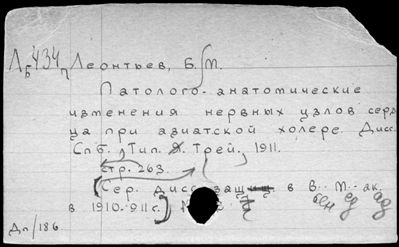 Л434п Леонтьев, Б. М.
Б
Патолого-анатомические
изменения нервных узлов серд
ца при азиатской холере. Дисс.
Спб., Тип. Я. Трей, 1911.
стр. 263.
(Сер. дисс. защ. в В. М. ак.
в 1910-911 г.)
ен ед ад
Дп/186